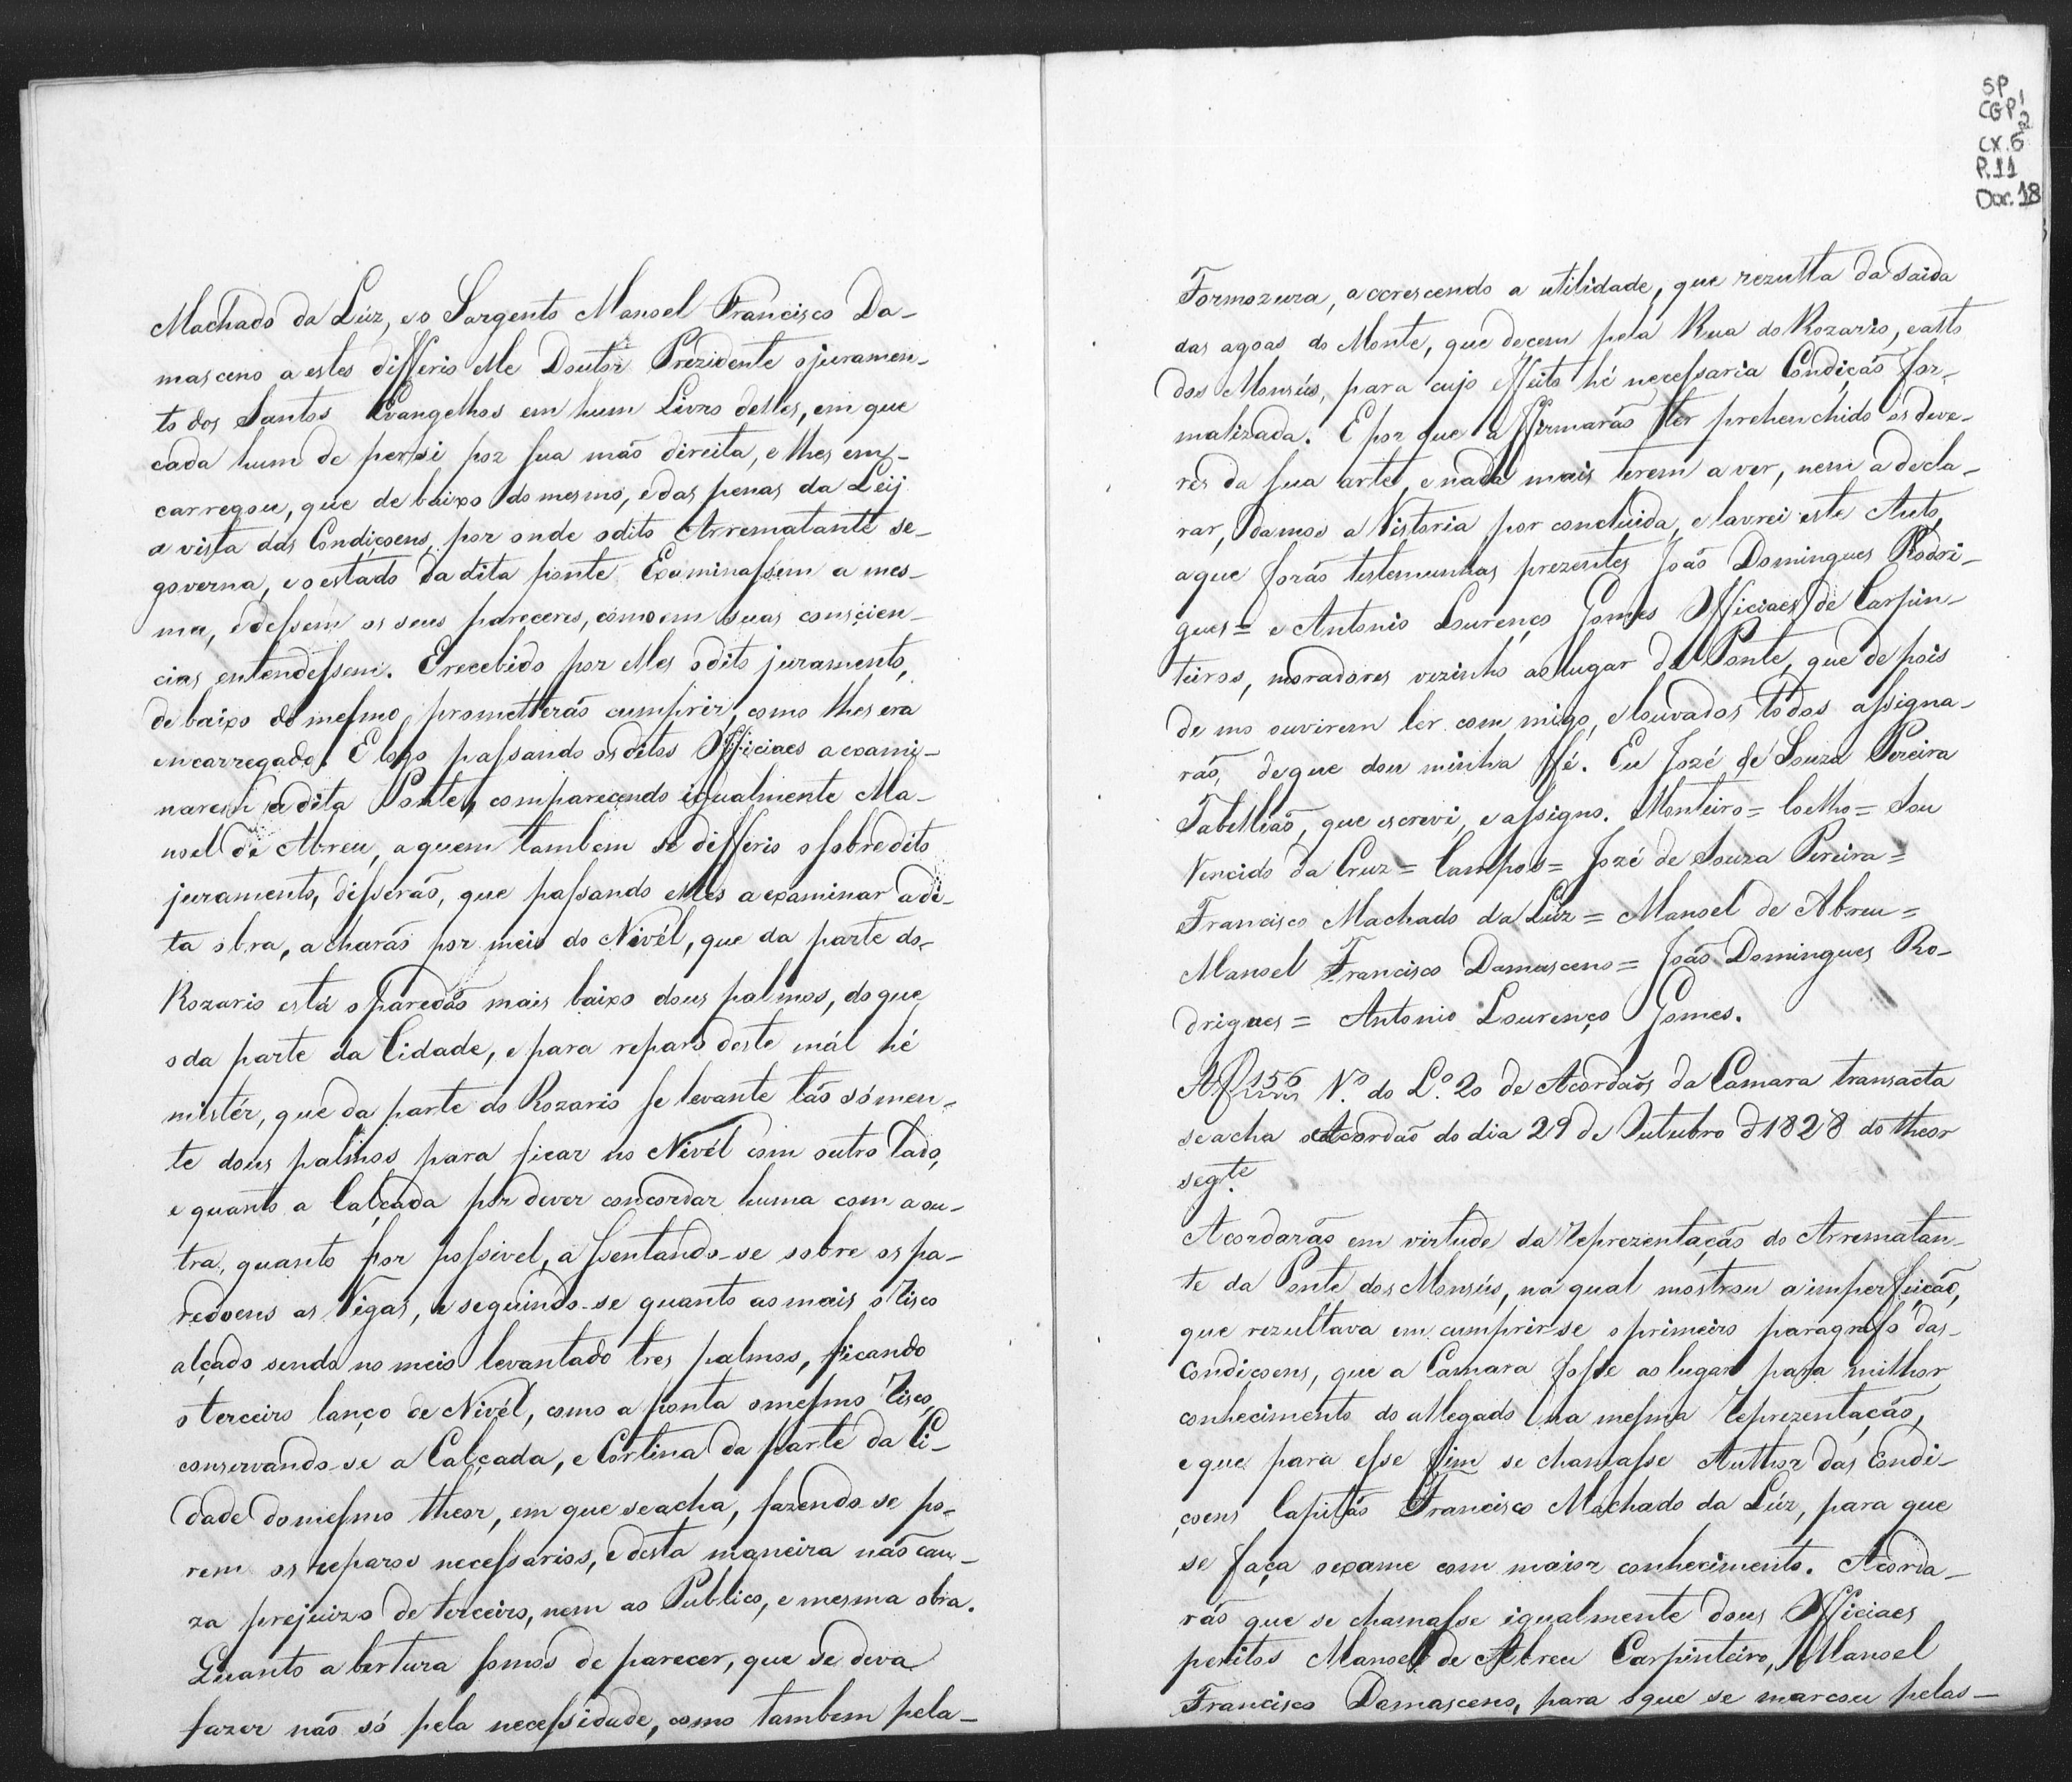 Machado da Lúz, e o Sargento Manoel Francisco Da-
masceno a estes differio elle Doutor Prezidente o juramen-
to dos Santos Evangelhos em hum Livro delles, em que
cada hum de per si poz sua mão direita, e lhes em-
carregou, que de baixo do mesmo, e das penas da Leij
a vista das Condiçoens, por onde o dito Arrematante se-
governa, e o estado da dita ponte Examinassem a mes-
ma, e dessem os seus pareceres, como em suas conscien-
cias entendessem. E recebido por elles o dito juramento,
de baixo do mesmo prometterão cumprir, como lhes era
encarregado. E logo passando os ditos Officiaes a exami-
narem a dita Ponte, comparecendo igualmente Ma-
noel de Abreu, a quem tambem se differio o sobredito
juramento, disserão, que passando elles a examinar a di-
ta obra, acharão por meio do Nivél, que da parte do-
Rozario está o paredão mais baixo dous palmos, do que
o da parte da Cidade, e para reparo deste mál hé
mistér, que da parte do Rozario se levante tão sómen-
te dous palmos para ficar no Nivél com outro lado,
e quanto a Calçada por dever concordar huma com a ou-
tra, quanto for possivel, assentando-se sobre os pa-
redoens as Vigas, e seguindo-se quanto ao mais o risco
alçado sendo no meio levantado tres palmos, ficando
o terceiro lanço de Nivél, como aponta o mesmo risco,
conservando-se a Calçada, e Cortina da parte da Ci-
dade do mesmo theor, em que se acha, fazendo-se po-
rem os reparos necessarios, e desta maneira não cau-
za prejuizo de terceiro, nem ao Publico, e mesma obra.
Quanto abertura somos de parecer, que se deva
fazer não só pela necessidade, como tambem pela-
SP
CGP1
2
cx.6
P.11
Doc. 18
Formozura, accrescendo a utilidade, que rezulta da saida
das agoas do Monte, que decem pela Rua do Rozario, e alto
dos Monsús, para cujo effeito hé necessaria Condição for-
malizada. E por que affirmarão ter prehenchido os deve-
res da sua arte, e nada mais terem a ver, nem a decla-
rar, damos a Vistoria por concluida, e lavrei este Auto,
a que forão testemunhas prezentes João Domingues Rodri-
gues = e Antonio Lourenço Gomes Officiaes de Carpin-
teiros, moradores vezinho ao lugar da Ponte, que depois
de mo ouvirem ler com migo, e louvados todos assigna-
rão, de que dou minha ffé. Eu Jozé de Souza Pereira
Tabellião, que escrevi, e assigno. Monteiro = Coelho = Sou
Vencido da Cruz = Campos = Jozé de Souza Pereira =
Francisco Machado da Lúz = Manoel de Abreu =
Manoel Francisco Damasceno = João Domingues Ro-
drigues = Antonio Lourenço Gomes.
Af 156 Vº. do Lº. 20 de Acordaõs da Camara transacta
se acha o Acordaõ do dia 29 de Outubro d 1828 do theor
segte
Acordarão em virtude da reprezentação do Arrematan-
te da Ponte dos Monsús, na qual mostrou a imperfeicão,
que rezultava em cumprir-se o primeiro paragrafo das-
Condiçoens, que a Camara fosse ao lugar para milhor
conhecimento do allegado na mesma reprezentação,
e que para esse fim se chamasse Author das Condi-
çoens Capitão Francisco Machado da Lúz, para que
se faça o exame com maior conhecimento. Acorda-
rão que se chamasse igualmente dous Officiaes
peritos Manoel de Abreu Carpinteiro, Manoel
Francisco Damasceno, para o que se marcou pelas-